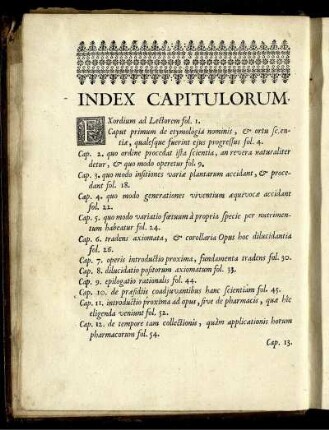 INDEX CAPITULORUM.
EXordium ad Lectorem fol. 1.
Caput primum de etymologia nominis, & ortu scien-
tiæ, qualesque fuerint ejus progressus fol. 4.
Cap. 2. quo ordine procedat ista scientia, an revera naturaliter
detur, & quo modo operetur fol. 9.
Cap. 3. quo modo insitiones variæ plantarum accidant, & proce-
dant fol. 18.
Cap. 4. quo modo generationes viventium æquivocæ accidant
fol. 22.
Cap. 5. quo modo variatio fœtuum à propria specie per nutrimen-
tum habeatur fol. 24.
Cap. 6. tradens axiomata, & corollaria Opus hoc dilucidantia
fol. 26.
Cap. 7. operis introductio proxima, fundamenta tradens fol. 30.
Cap. 8. dilucidatio positorum axiomatum fol. 33.
Cap. 9. epilogatio rationalis fol. 44.
Cap. 10. de præsidiis coadjuvantibus hanc scientiam fol. 45.
Cap. 11. introductio proxima ad opus, sive de pharmacis, quæ hîc
eligenda veniunt fol. 52.
Cap. 12. de tempore tam collectionis, quàm applicationis horum
pharmacorum fol. 54.
Cap. 13.